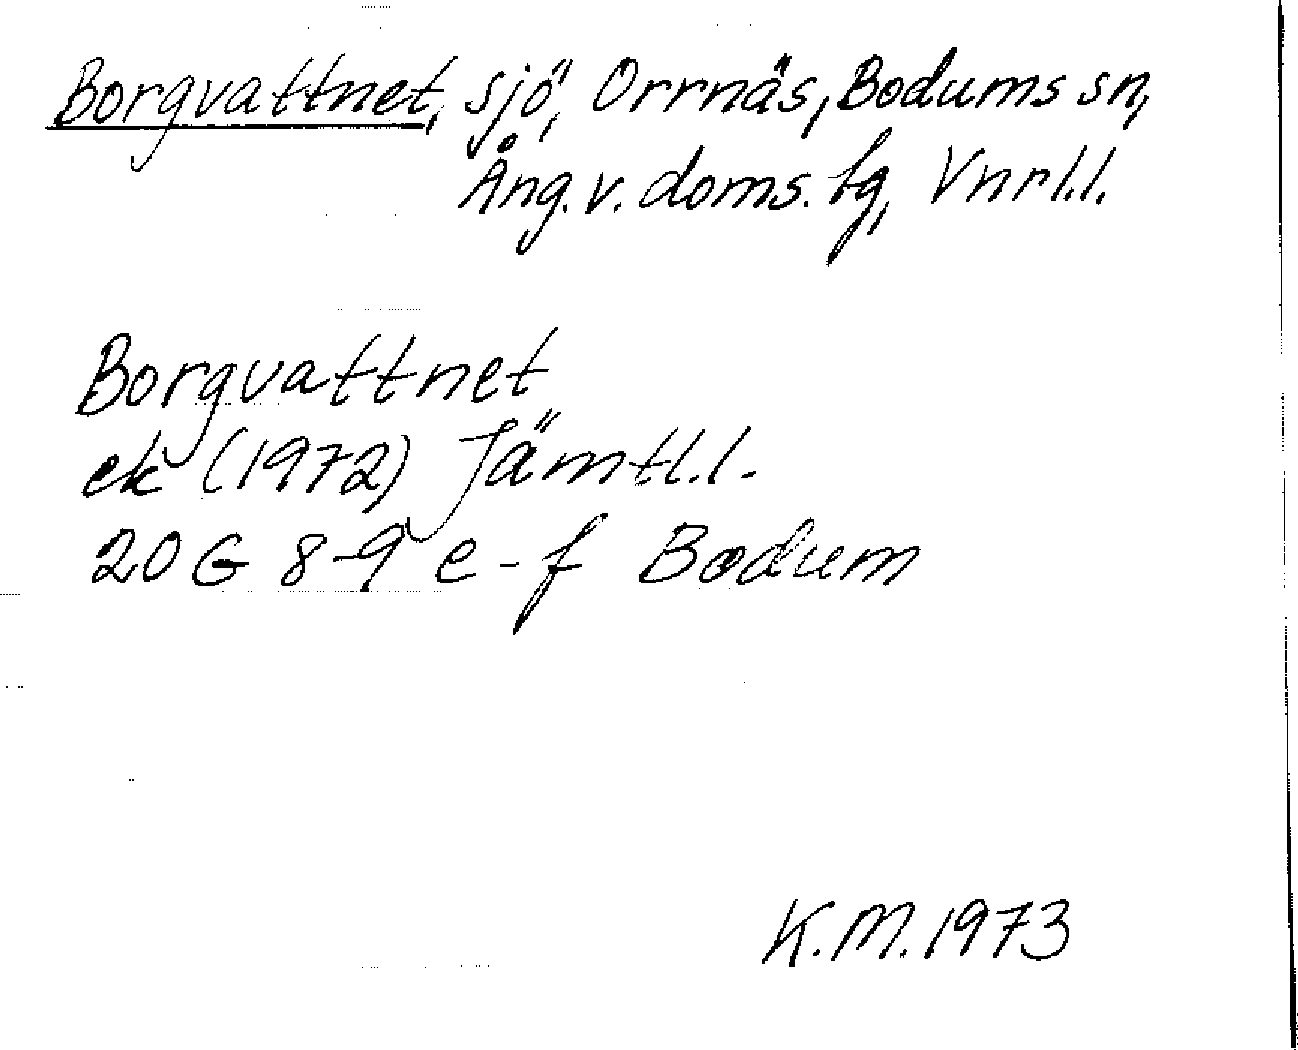 Borgvattnet, sjö, Orrnäs, Bodums sn,
Ång. v. doms. fg, Vnrl.l.
Borgvattnet
ek (1972) Jämtl.l.
20 G 8-9 e-f Bodum
K.M. 1973